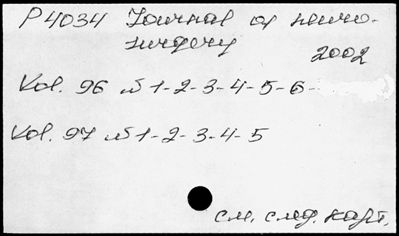 P 4034 Journal of neuro-
surgery
2002
Vol. 96 № 1-2-3-4-5-6-
Vol. 97 № 1-2-3-4-5
см. след. карт.